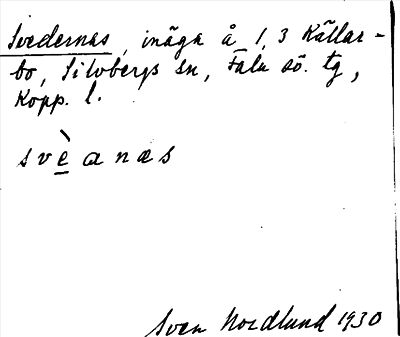 Svedernas, inäga å 1,3 Källar-
bo, Silvbergs sn, Falu sö. tg,
Kopp. l.
svè̲anæs
Sven Nordlund 1930